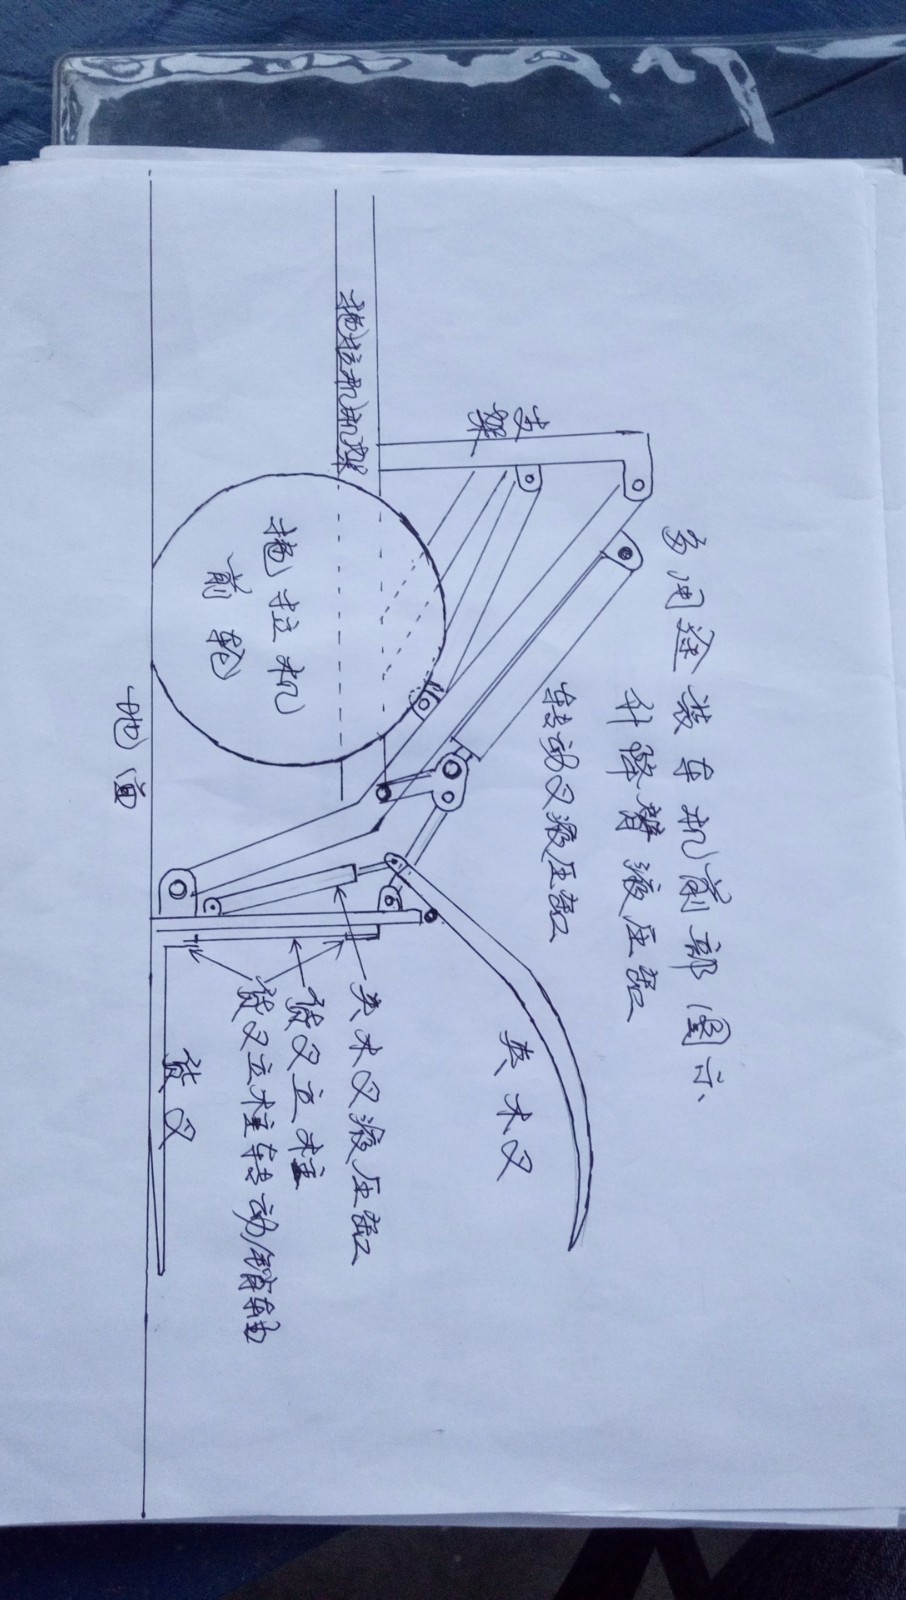 多用途装车机前部图示
升降臂液压缸
转动叉液压缸
支
架
拖拉机机架
夹木叉
拖拉机
前轮
夹木叉液压缸
货叉立柱
货叉立柱转动销轴
货叉
地面